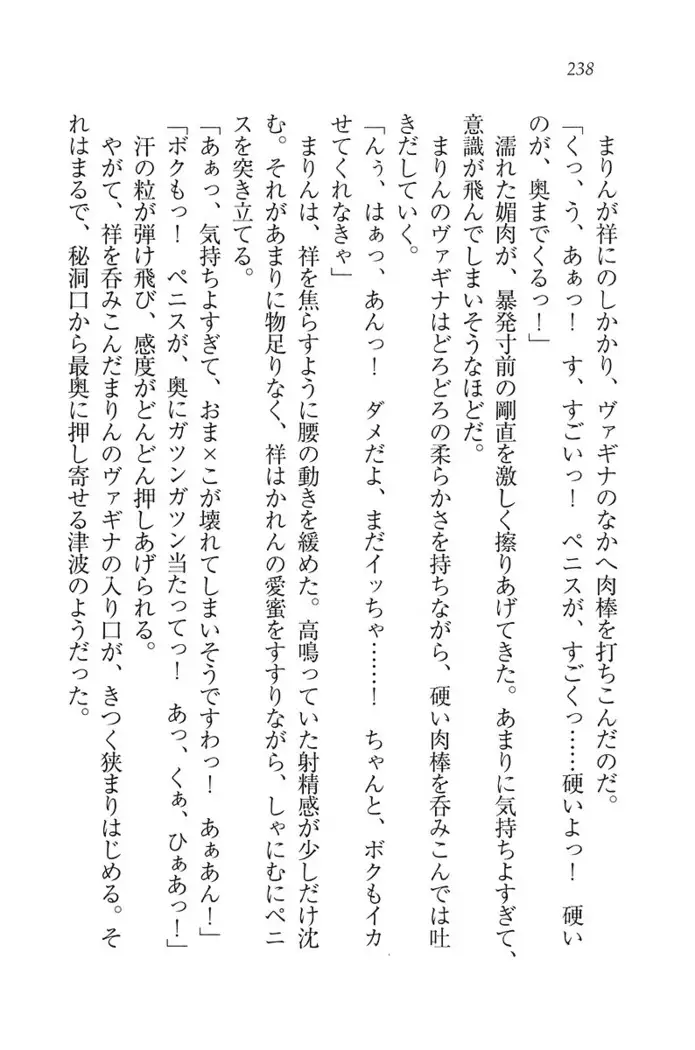 238
まりんが祥にのしかかり、ヴァギナのなかへ肉棒を打ちこんだのだ。
「くっ、う、あぁっ！　す、すごいっ！　ペニスが、すごくっ……硬いよっ！　硬い
のが、奥までくるっ！」
濡れた媚肉が、暴発寸前の剛直を激しく擦りあげてきた。あまりに気持ちよすぎて、
意識が飛んでしまいそうなほどだ。
まりんのヴァギナはどろどろの柔らかさを持ちながら、硬い肉棒を呑みこんでは吐
きだしていく。
「んぅ、はぁっ、あんっ！　ダメだよ、まだイッちゃ……！　ちゃんと、ボクもイカ
せてくれなきゃ」
まりんは、祥を焦らすように腰の動きを緩めた。高鳴っていた射精感が少しだけ沈
む。それがあまりに物足りなく、祥はかれんの愛蜜をすすりながら、しゃにむにペニ
スを突き立てる。
「あぁっ、気持ちよすぎて、おま×こが壊れてしまいそうですわっ！　あぁあん！」
「ボクもっ！　ペニスが、奥にガツンガツン当たってっ！　あっ、くぁ、ひぁあっ！」
汗の粒が弾け飛び、感度がどんどん押しあげられる。
やがて、祥を呑みこんだまりんのヴァギナの入り口が、きつく狭まりはじめる。そ
れはまるで、秘洞口から最奥に押し寄せる津波のようだった。